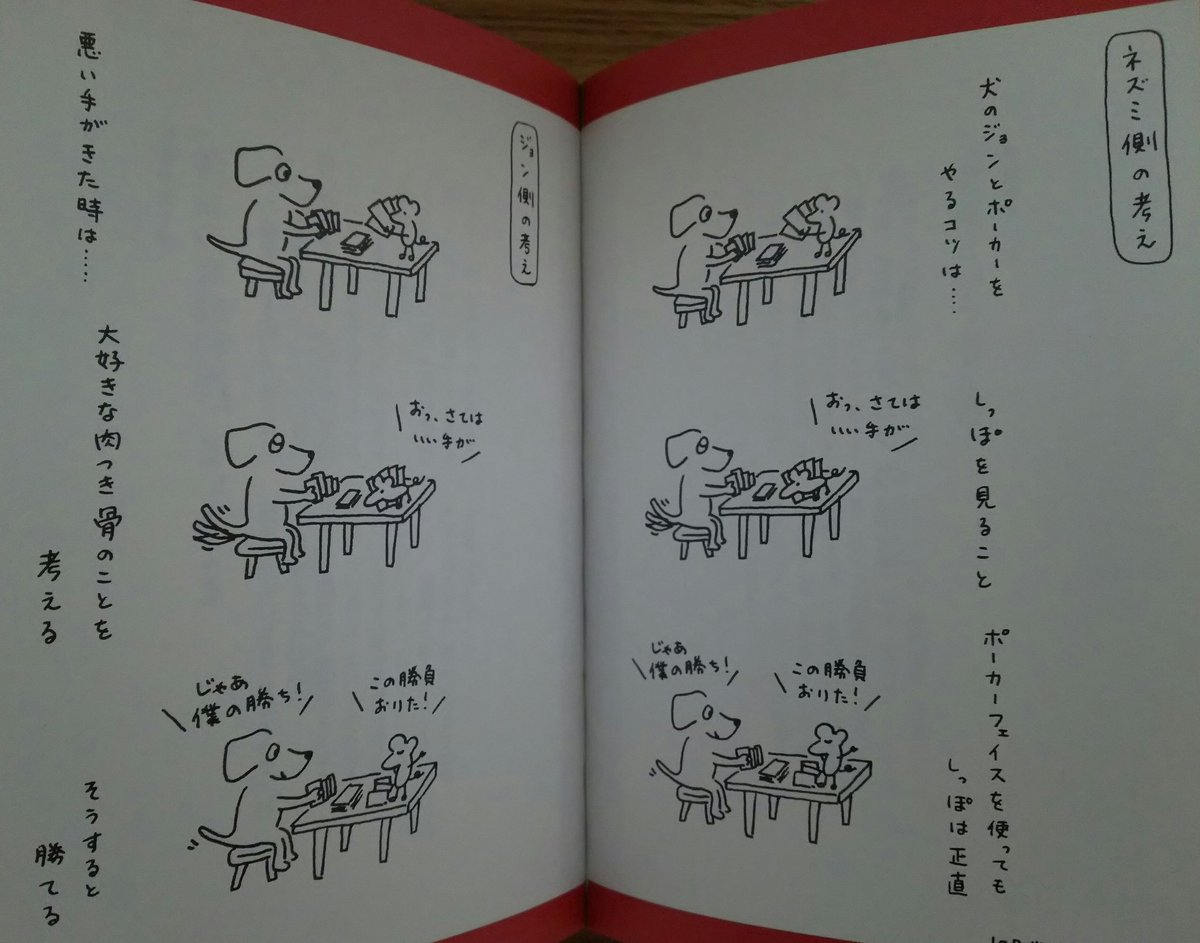 ネズミ側の考え
犬のジョンとポーカーを
やるコツは……
しっぽを見ること
おっ、さては
いい手が
ポーカーフェイスを使っても
しっぽは正直
この勝負
おりた!
じゃあ
僕の勝ち!
ジョン側の考え
悪い手がきた時は……
おっ、さては
いい手が
大好きな肉つき骨のことを
考える
この勝負
おりた!
じゃあ
僕の勝ち!
そうすると
勝てる